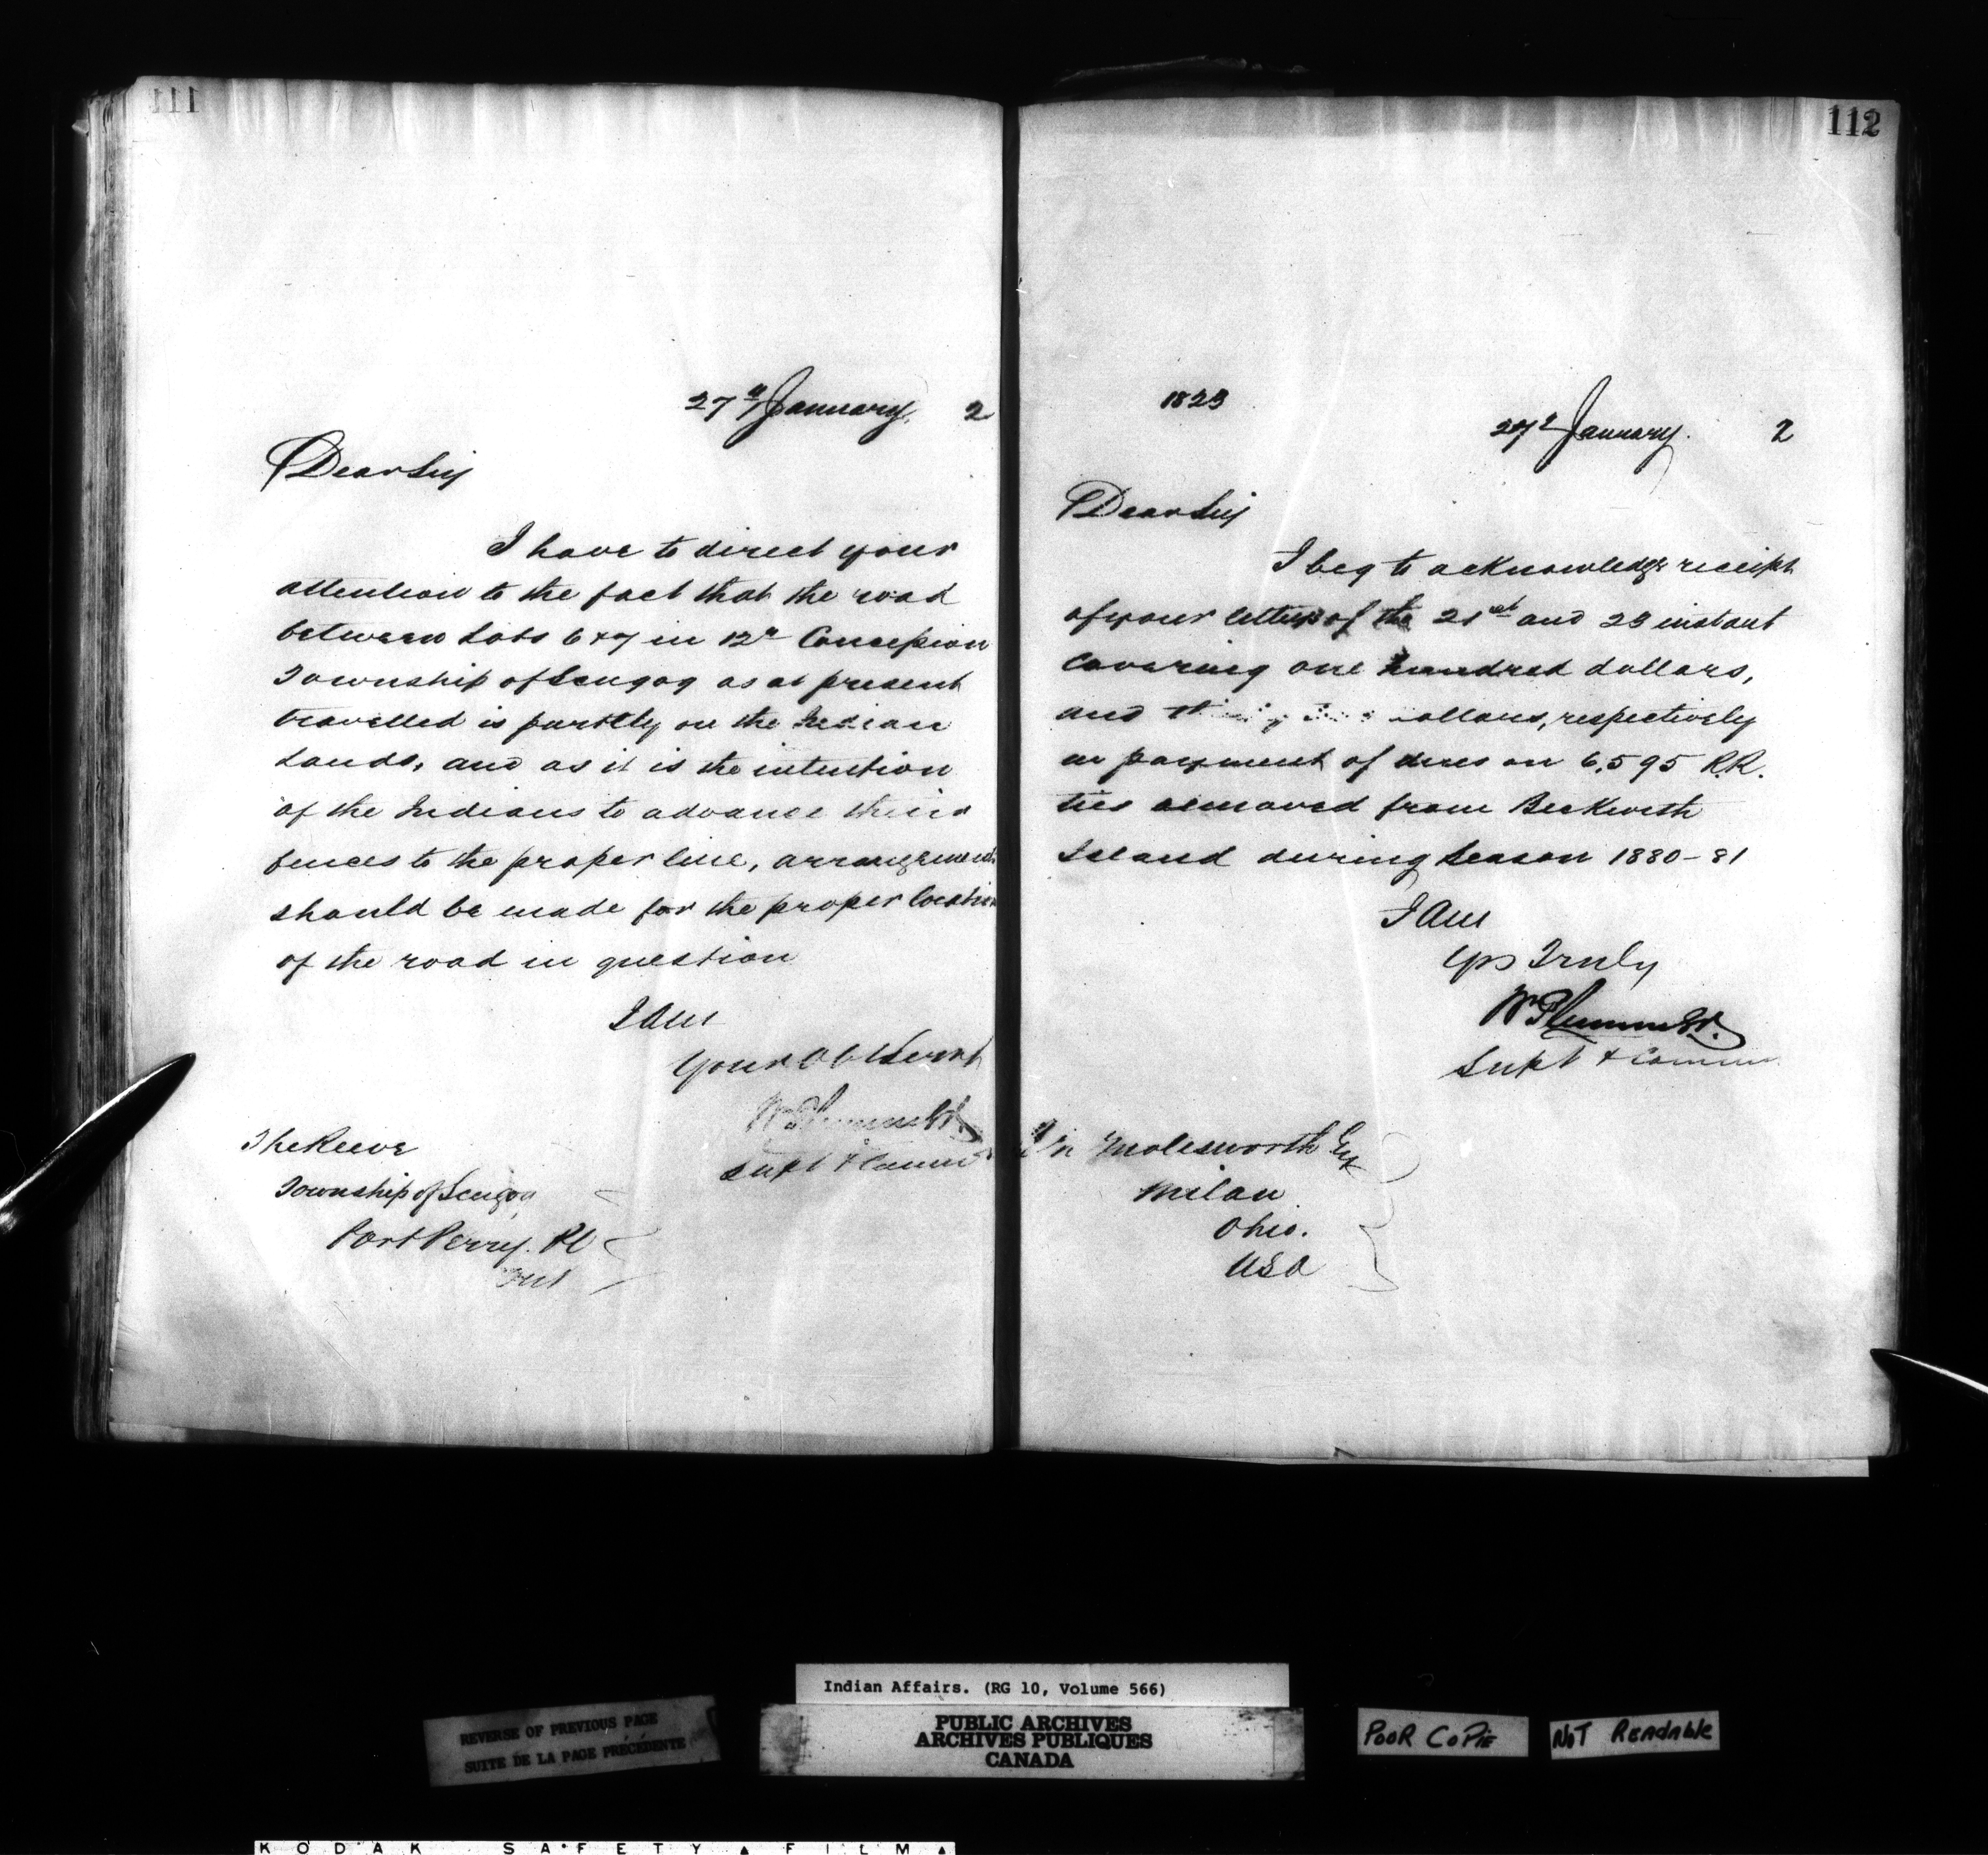 111
27th January. 2
Dear Sir
I have to direct your
attention to the fact that the road
between Lots 6 & 7 in 12th Concession
Township of Scugog as at present
travelled is partly on the Indian
Lands, and as it is the intention
of the Indians to advance their
fences to the proper line, arrangements
should be made for the proper location
of the road in question
I am
Your Obt Servt
Wm Plummer
Supt & Comm
The Reeve
Township of Scugog
Port Perry. PO
Ont
112
1823
27th January. 2
Dear Sir
I beg to acknowledge receipt
of your letters of the 21st and 23 instant
covering one hundred dollars,
and dollars, respectively
in payment of dues on 6,595 R.R.
ties removed from Beckwith
Island during Season 1880-81
I am
Yrs Truly
Wm Plummer
Supt & Comm
Molesworth Esq
Milan
Ohio.
USA
Indian Affairs. (RG 10, Volume 566)
PUBLIC ARCHIVES
ARCHIVES PUBLIQUES
CANADA
REVERSE OF PREVIOUS PAGE
SUITE DE LA PAGE PRÉCÉDENTE
POOR COPIE
NOT READABLE
KODAK SAFETY FILM